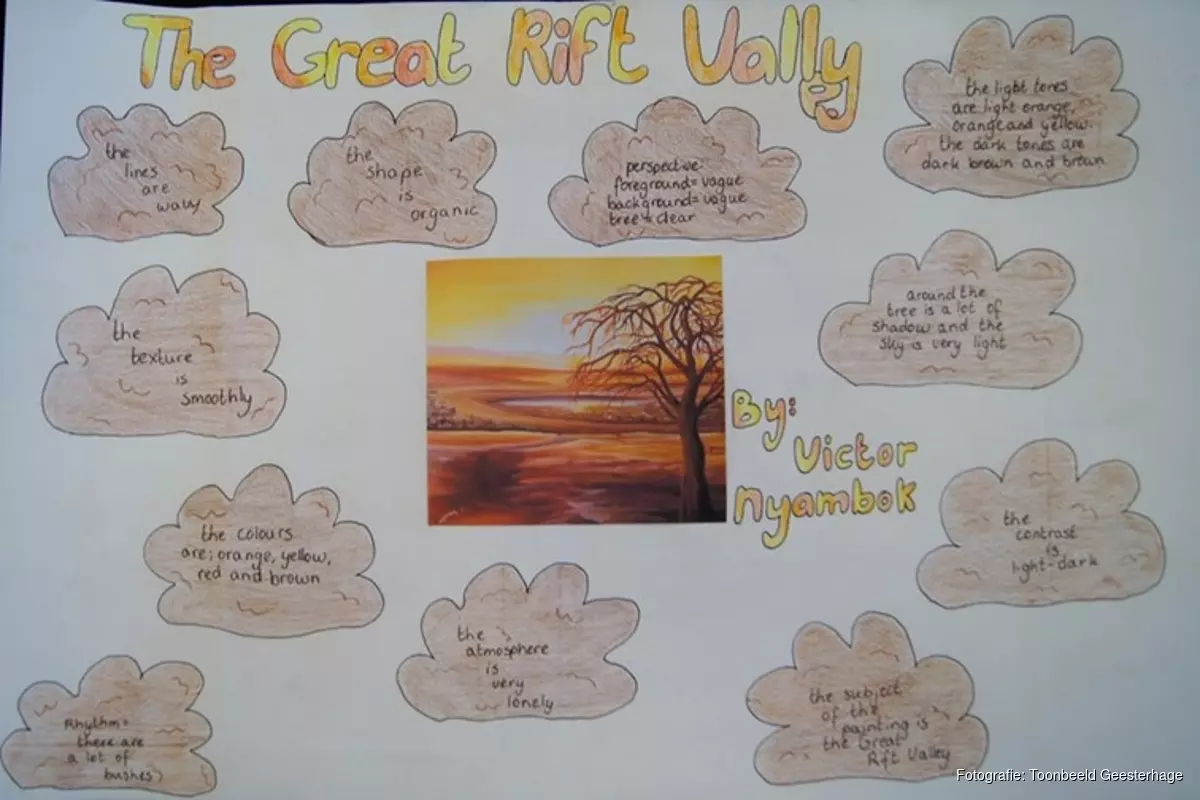 The Great Rift Vally
the
lines
are
wavy
the
shape
is
organic
perspective:
foreground= vague
background= vague
tree= clear
the light tones
are light orange,
orange and yellow.
the dark tones are
dark brown and brown
the
texture
is
smoothly
around the
tree is a lot of
shadow and the
sky is very light
By:
Victor
Nyambok
the colours
are; orange, yellow,
red and brown
the
contrast
is
light-dark
the
atmosphere
is
very
lonely
the subject
of the
painting is
the Great
Rift Valley
Rhythm=
there are
a lot of
bushes
Fotografie: Toonbeeld Geesterhage